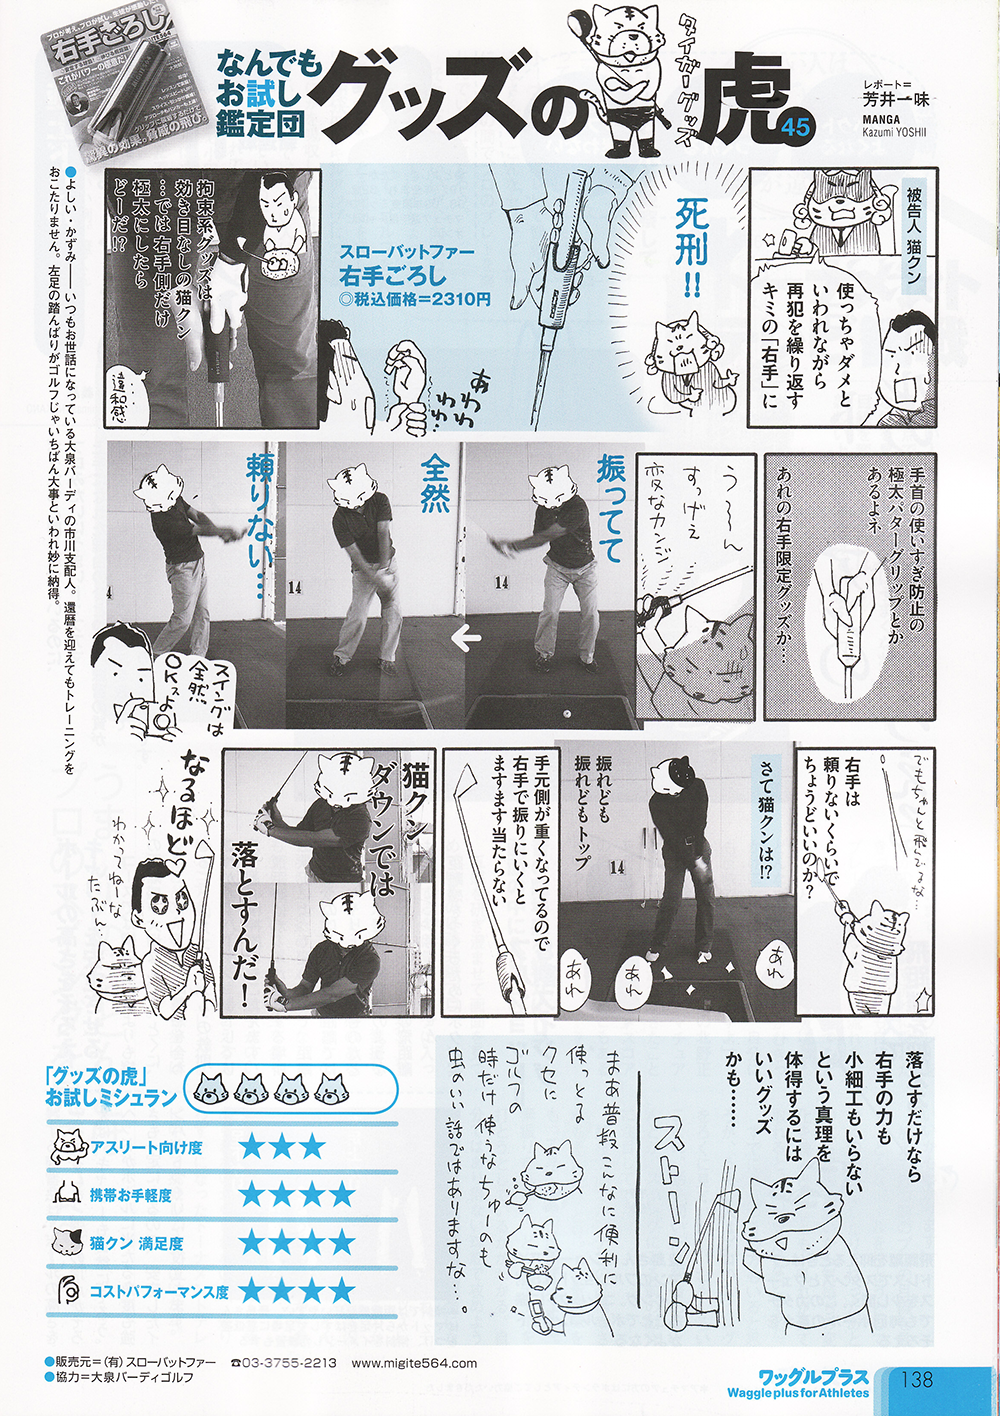 プロが考え、プロが試し、生徒が感動した
右手ごろし
これがパワーの極意だ!
驚異の効果。脅威の飛び。
なんでも
お試し
鑑定団
グッズの虎
タイガーグッズ
45
レポート=
芳井一味
MANGA
Kazumi YOSHII
被告人 猫クン
使っちゃダメと
いわれながら
再犯を繰り返す
キミの「右手」に
死刑!!
スローバットファー
右手ごろし
◎税込価格=2310円
あわわわわ
拘束系グッズは
効き目なしの猫クン
…では右手側だけ
極太にしたら
どーだ!?
…違和感
手首の使いすぎ防止の
極太パターグリップとか
あるよネ
あれの右手限定グッズか…
う〜〜ん
すっげえ
変なカンジ
振ってて
全然
頼りない…
14
14
スイングは
全然
OKスよ
でもちゃんと飛んでるな…
右手は
頼りないくらいで
ちょうどいいのか?
さて猫クンは!?
振れども
振れどもトップ
14
あれ
あれ
あれ
手元側が重くなってるので
右手で振りにいくと
ますます当たらない
猫クン
ダウンでは
落とすんだ!
なるほど♡
わかってねーな
たぶん…
落とすだけなら
右手の力も
小細工もいらない
という真理を
体得するには
いいグッズ
かも……
ストーン
まあ普段こんなに便利に
使っとる
クセに
ゴルフの
時だけ使うなちゅーのも
虫のいい話ではありますな…。
●よしい・かずみ――いつもお世話になっている大泉バーディの市川支配人。還暦を迎えてもトレーニングを
おこたりません。左足の踏んばりがゴルフじゃいちばん大事といわれ妙に納得。
「グッズの虎」
お試しミシュラン
アスリート向け度 ★★★
携帯お手軽度 ★★★★
猫クン 満足度 ★★★★
コストパフォーマンス度 ★★★★
●販売元=(有)スローバットファー ☎03-3755-2213 www.migite564.com
●協力=大泉バーディゴルフ
ワッグルプラス
Waggle plus for Athletes
138